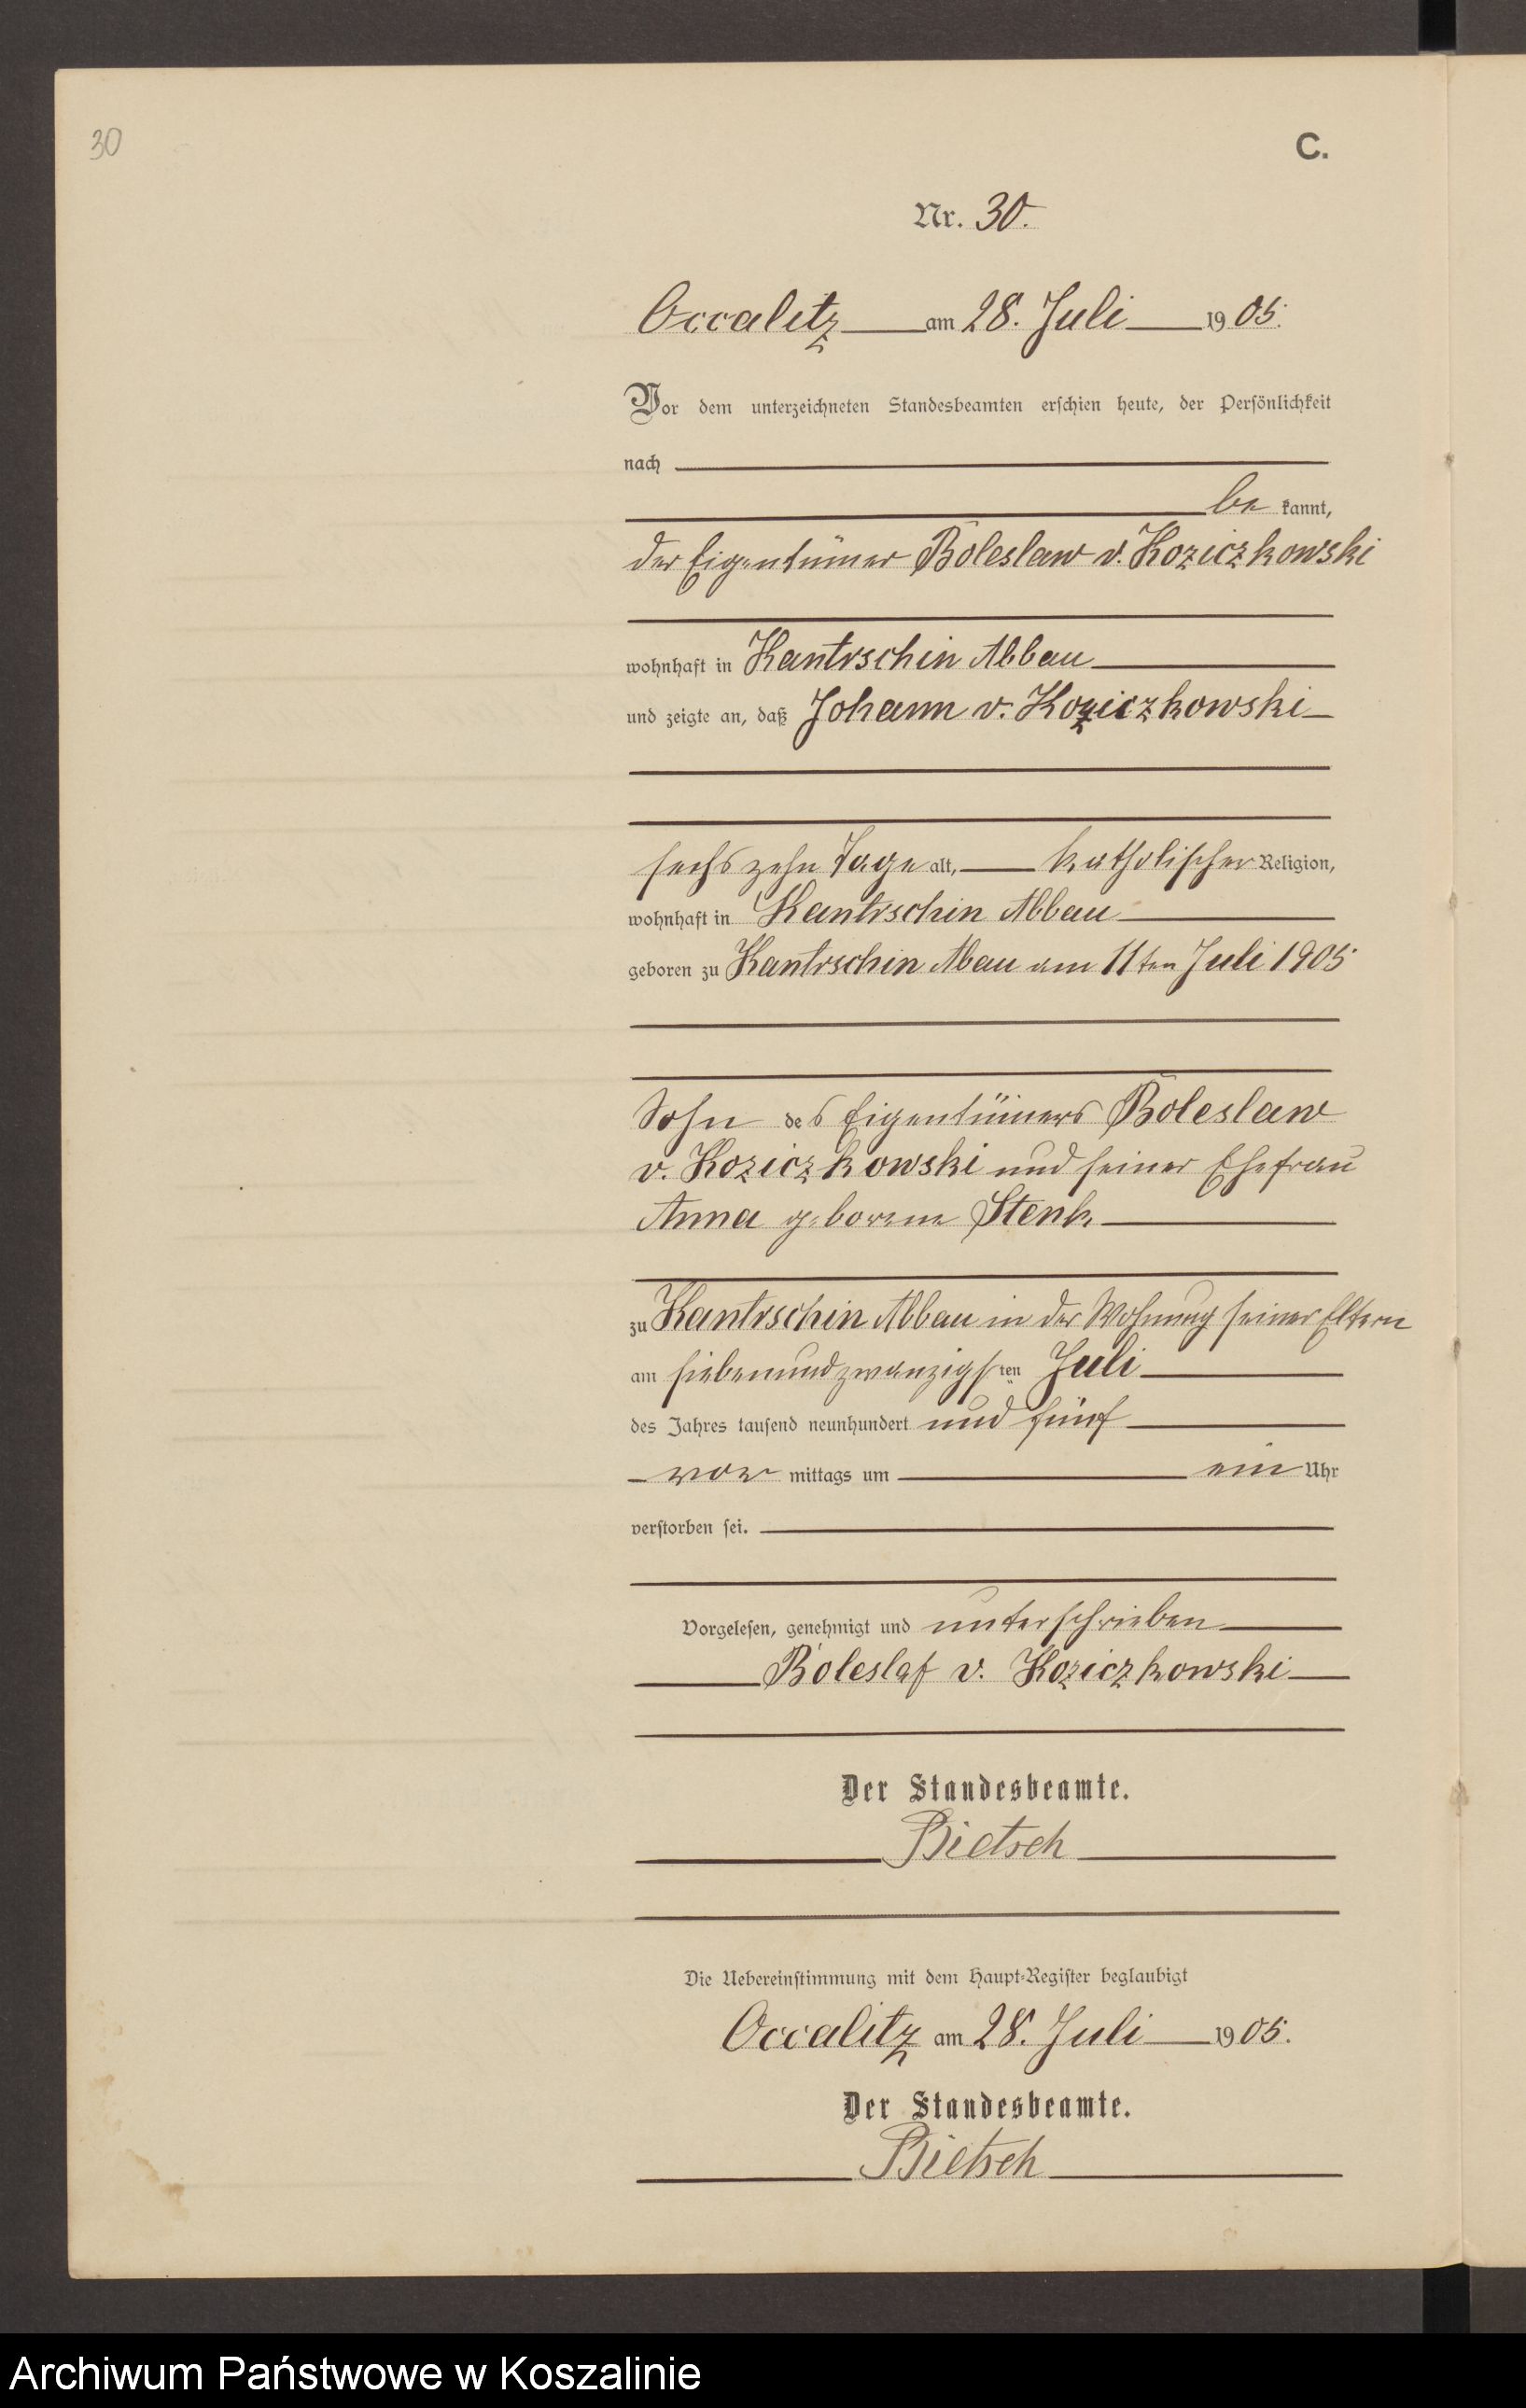 30
C.
Nr. 30.
Occalitz am 28. Juli 1905.
Vor dem unterzeichneten Standesbeamten erschien heute, der Persönlichkeit
nach
be kannt,
der Eigentümer Boleslaw v. Koziczkowski
wohnhaft in Kantrschin Abbau
und zeigte an, daß Johann v. Koziczkowski
sechszehn Tage alt, katholischer Religion,
wohnhaft in Kantrschin Abbau
geboren zu Kantrschin Abau am 11ten Juli 1905
Sohn des Eigentümers Boleslaw
v. Koziczkowski und seiner Ehefrau
Anna geborene Stenk
zu Kantrschin Abbau in der Wohnung seiner Eltern
am siebenundzwanzigsten Juli
des Jahres tausend neunhundert und fünf
vor mittags um ein Uhr
verstorben sei.
Vorgelesen, genehmigt und unterschrieben
Boleslaf v. Koziczkowski
Der Standesbeamte.
Bietsch
Die Uebereinstimmung mit dem Haupt-Register beglaubigt
Occalitz am 28. Juli 1905.
Der Standesbeamte.
Bietsch
Archiwum Państwowe w Koszalinie